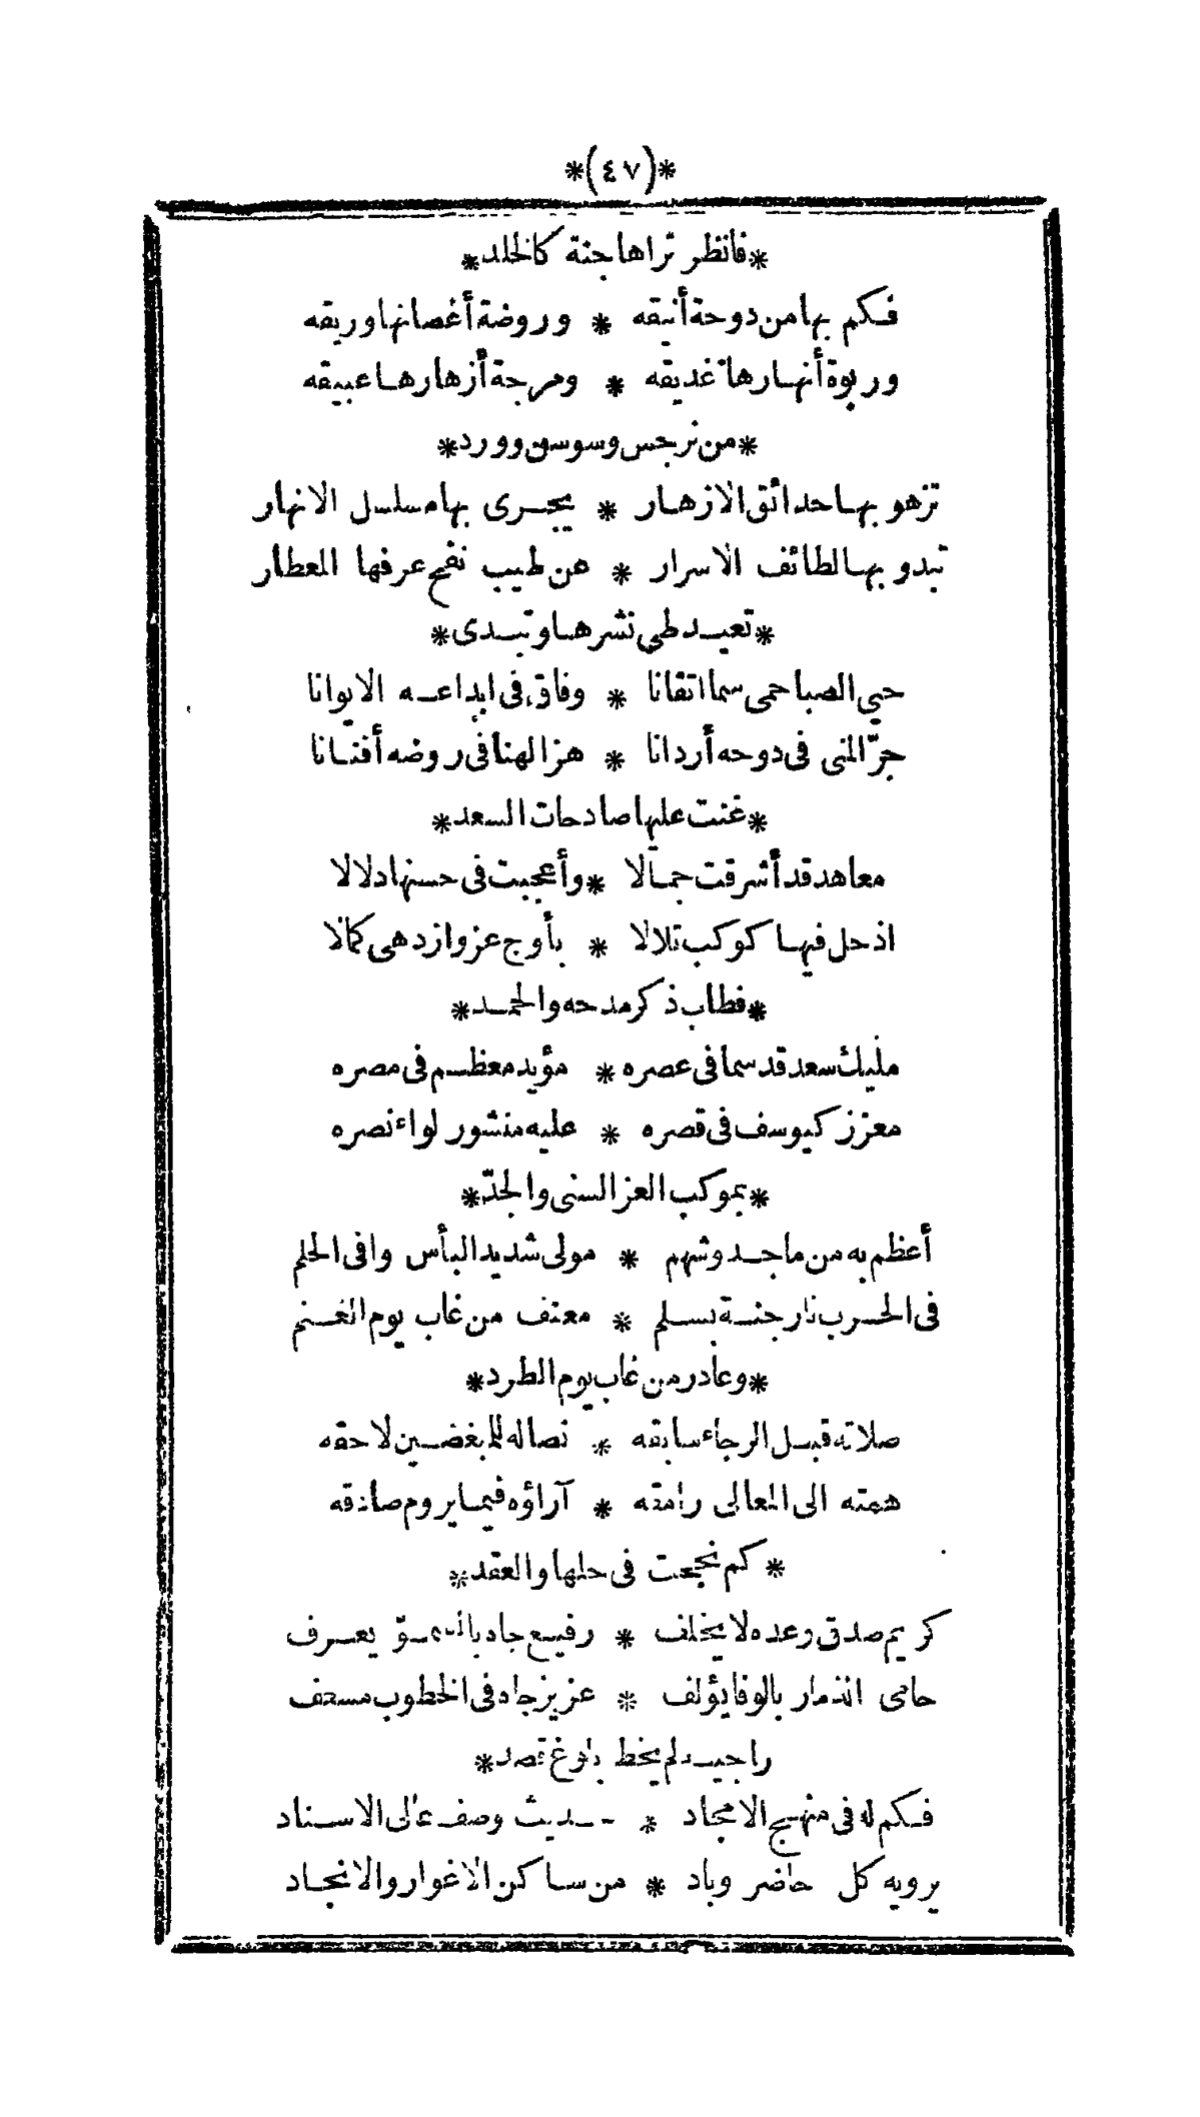 *(٤٧)*
*فانظر تراها جنة كالخلد*
فكم بها من دوحة أنيقه * وروضة أغصانها وريقه
وربوة أنهارها غديقه * ومرجة أزهارها عبيقه
*من نرجس وسوسن وورد*
تزهو بها حدائق الازهار * يجرى بها مسلسل الانهار
تبدو بها لطائف الاسرار * عن طيب نفح عرفها المعطار
*تعيد طي نشرها وتبدى*
حيي الصبا حمى سما اتقانا * وفاق فى ابداعه الايوانا
جرّ المنى فى دوحه أردانا * هز الهنا فى روضه أفنانا
*غنت عليها صادحات السعد*
معاهد قد أشرقت جمالا * وأعجبت فى حسنها دلالا
اذ حل فيها كوكب تلالا * بأوج عز وازدهى كمالا
*فطاب ذكر مدحه والحمد*
مليك سعد قد سما فى عصره * مؤيد معظم فى مصره
معزز كيوسف فى قصره * عليه منشور لواء نصره
*بموكب العز السنى والجدّ*
أعظم به من ماجد وشهم * مولى شديد البأس وافى الحلم
فى الحرب نار جنة بسلم * معتف من غاب يوم الغنم
*وعاذر من غاب يوم الطرد*
صلاته قبل الرجاء سابقه * نصاله للمبغضين لاحقه
همته الى المعالى رامقه * آراؤه فيما يروم صادقه
*كم نجحت فى حلها والعقد*
كريم صدق وعده لا يخلف * رفيع جاه بالسموّ يعرف
حامى الذمار بالوفا يؤلف * عزيز جاه فى الخطوب مسعف
راجيه لم يخط بلوغ قصد*
فكم له فى منهج الامجاد * حديث وصف عالى الاسناد
يرويه كل حاضر وباد * من ساكن الاغوار والانجاد